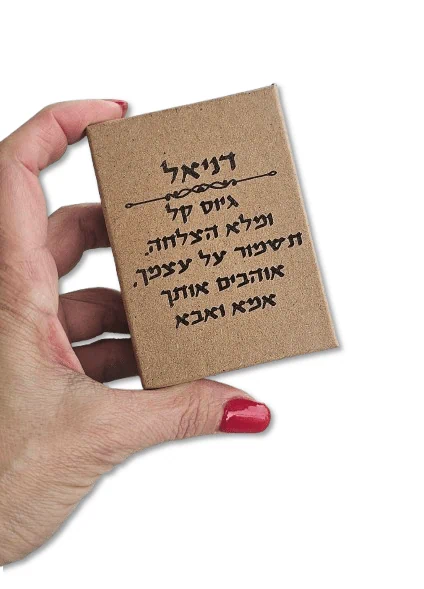 דניאל
גיוס קל
ומלא הצלחה.
תשמור על עצמך.
אוהבים אותך
אמא ואבא